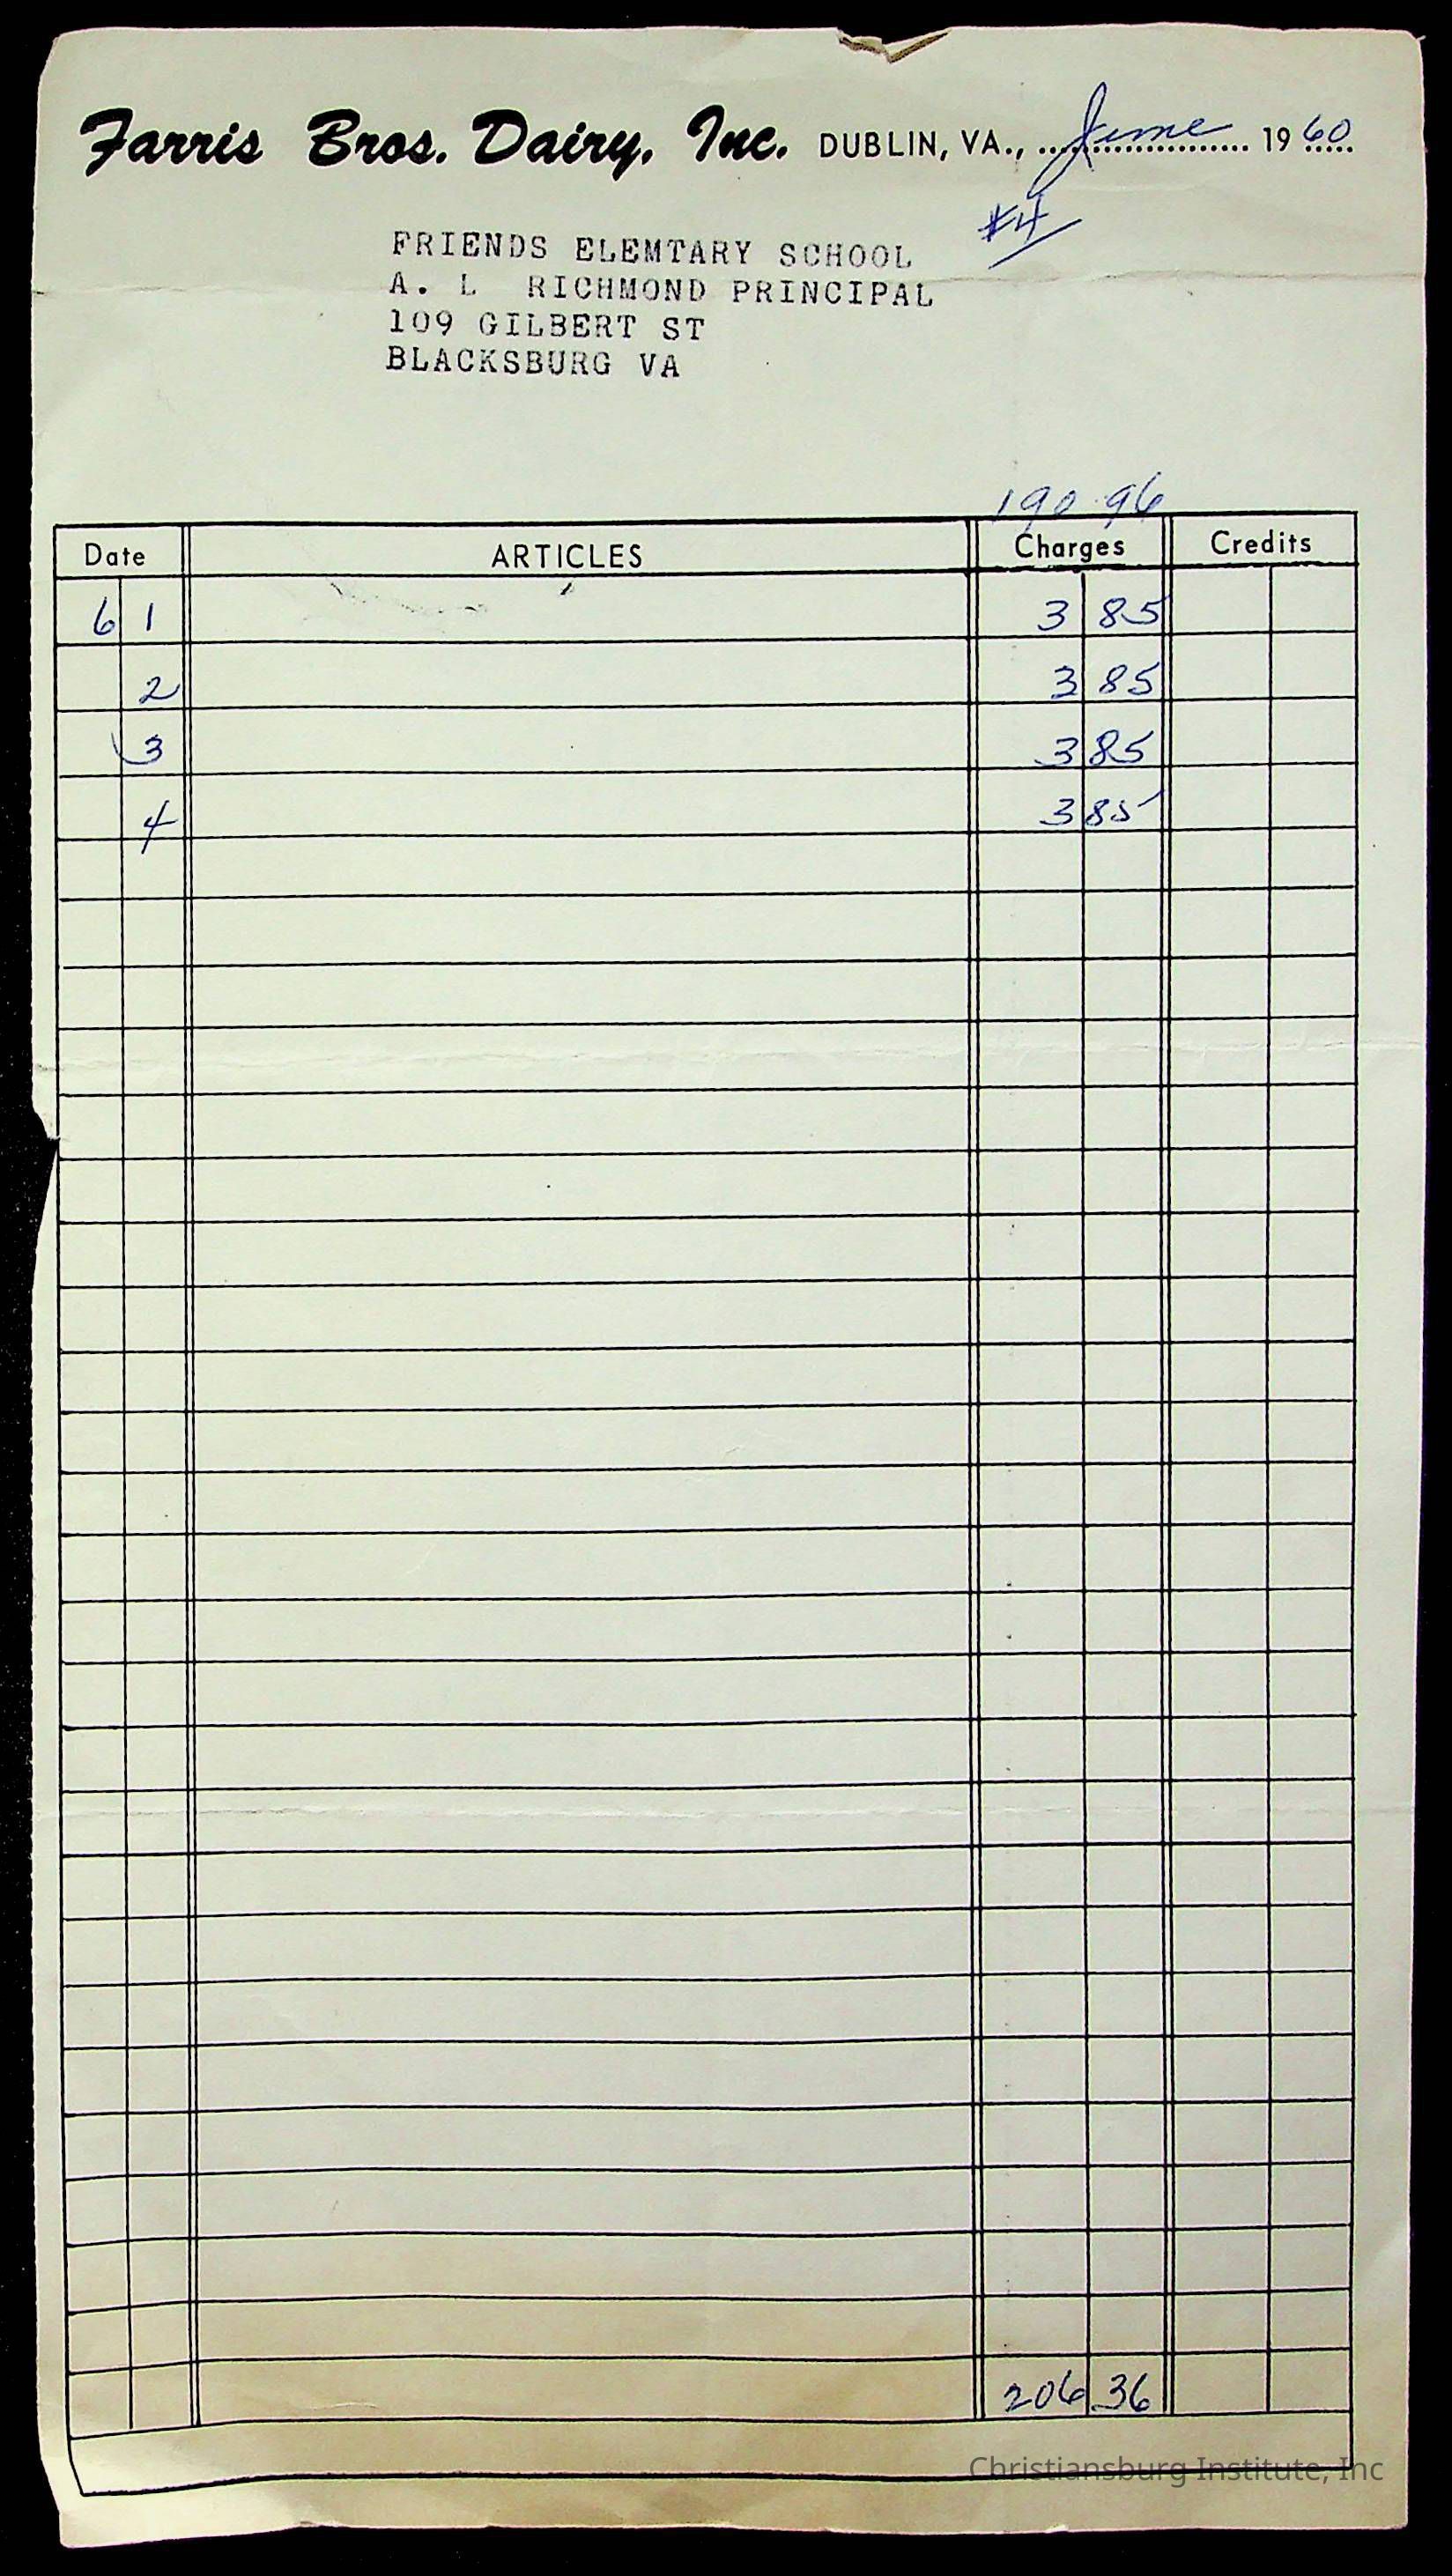 Farris Bros. Dairy, Inc. DUBLIN, VA., June 19 60
#4
FRIENDS ELEMTARY SCHOOL
A. L RICHMOND PRINCIPAL
109 GILBERT ST
BLACKSBURG VA
190 96
Date ARTICLES Charges Credits
6 1 3 85
2 3 85
3 3 85
4 3 85
206 36
Christiansburg Institute, Inc